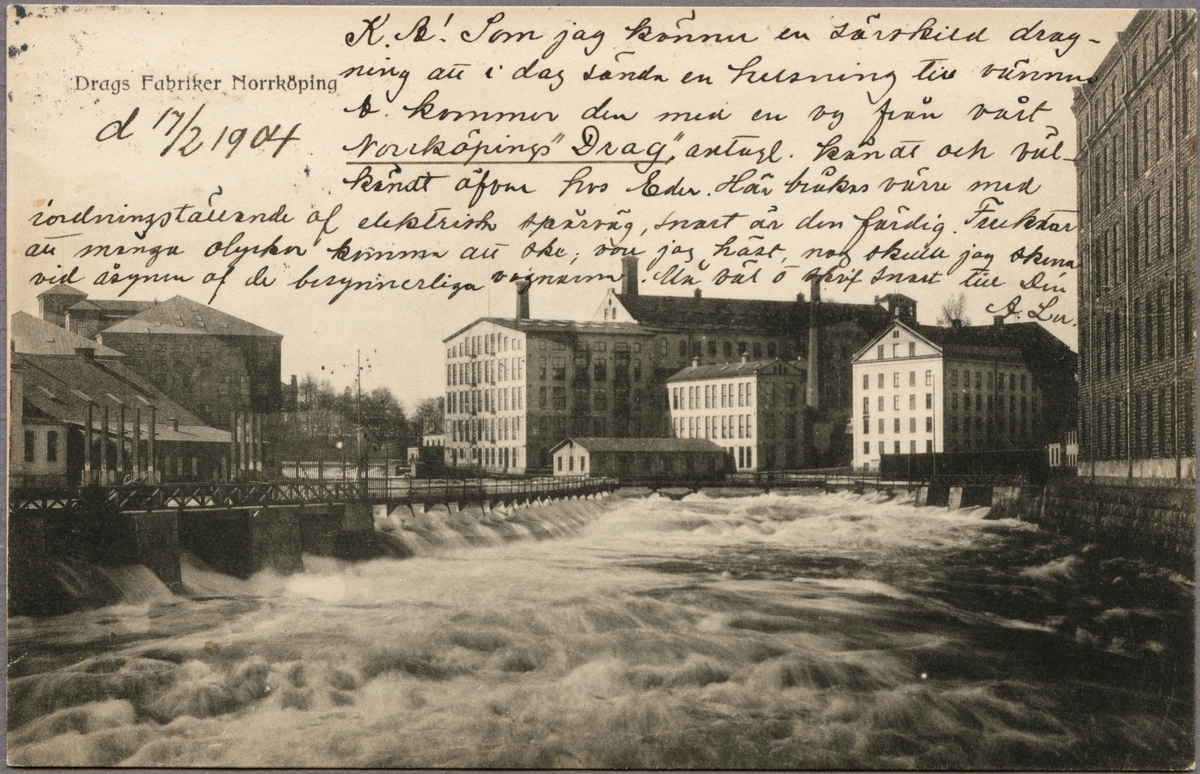 K. A! Som jag känner en särskild drag-
Drags Fabriker Norrköping
ning att i dag sända en helsning till vännen
d 17/2 1904
A. kommer den med en vy från vårt
Norrköpings "Drag", antagl. kändt och väl-
kändt äfven hos Eder. Här bråkas värre med
iordningställande af elektrisk spårväg, snart är den färdig. Fruktar
att många olyckor komma att ske; vore jag häst, nog skulle jag skena
vid åsynen af de besynnerliga vagnarna. Må väl o skrif snart till Din
A. Lr.